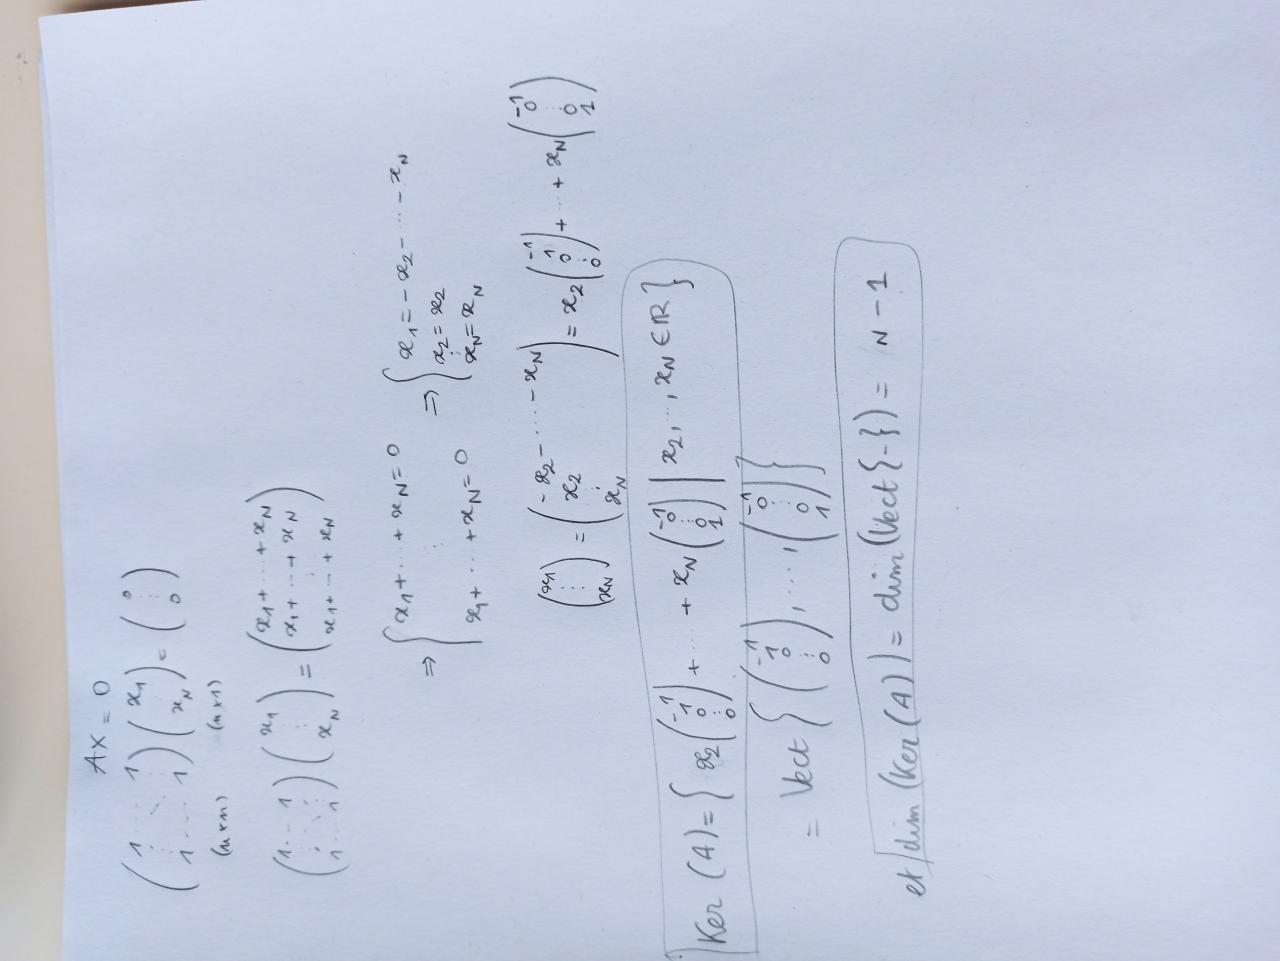 AX = 0
(1 ... 1 ⋮ ⋱ ⋮ 1 ... 1) (x1 ⋮ xN) = (0 ⋮ 0)
(n×n) (n×1)
(1 ... 1 ⋮ ⋱ ⋮ 1 ... 1) (x1 ⋮ xN) = (x1 + ... + xN x1 + ... + xN ⋮ x1 + ... + xN)
⇒ { x1 + ... + xN = 0 ⋮ x1 + ... + xN = 0 ⇒ { x1 = - x2 - ... - xN x2 = x2 ⋮ xN = xN
(x1 ⋮ xN) = (- x2 - ... - xN x2 ⋮ xN) = x2 (-1 1 0 ⋮ 0) + ... + xN (-1 0 ⋮ 0 1)
Ker (A) = { x2 (-1 1 0 ⋮ 0) + ... + xN (-1 0 ⋮ 0 1) | x2, ..., xN ∈ ℝ }
= Vect { (-1 1 0 ⋮ 0), ..., (-1 0 ⋮ 0 1) }
et dim (Ker (A)) = dim (Vect {-}) = N - 1